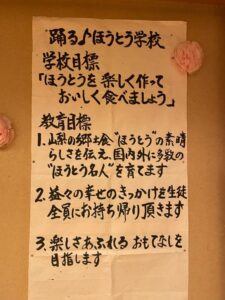 踊る♪ほうとう学校
学校目標
「ほうとうを 楽しく作って
おいしく食べましょう」
教育目標
1. 山梨の郷土食"ほうとう"の素晴
らしさを伝え、国内外に多数の
"ほうとう名人"を育てます
2. 益々の幸せのきっかけを生徒
全員にお持ち帰り頂きます
3. 楽しさあふれる おもてなしを
目指します